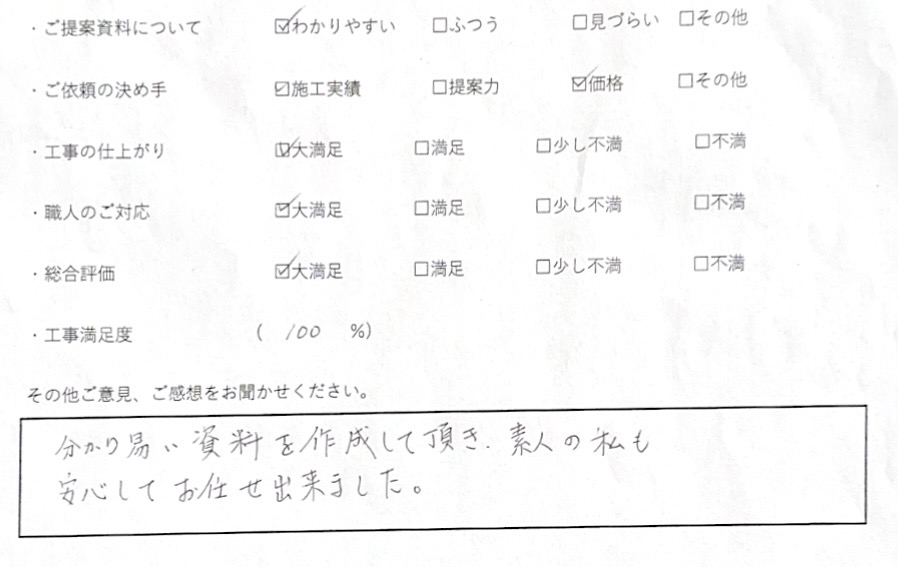 ・ご提案資料について ☑わかりやすい □ふつう □見づらい □その他
・ご依頼の決め手 ☑施工実績 □提案力 ☑価格 □その他
・工事の仕上がり ☑大満足 □満足 □少し不満 □不満
・職人のご対応 ☑大満足 □満足 □少し不満 □不満
・総合評価 ☑大満足 □満足 □少し不満 □不満
・工事満足度 ( 100 %)
その他ご意見、ご感想をお聞かせください。
分かり易い資料を作成して頂き、素人の私も
安心してお任せ出来ました。